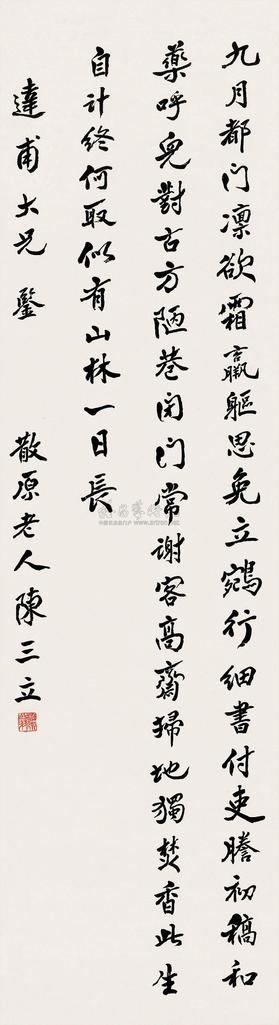 九月都门凛欲霜羸躯思免立鵷行细書付吏謄初稿和
藥呼兒對古方陋巷闭门常謝客高齋掃地獨焚香此生
自计终何取似有山林一日長
達甫大兄 鑒 散原老人陳三立